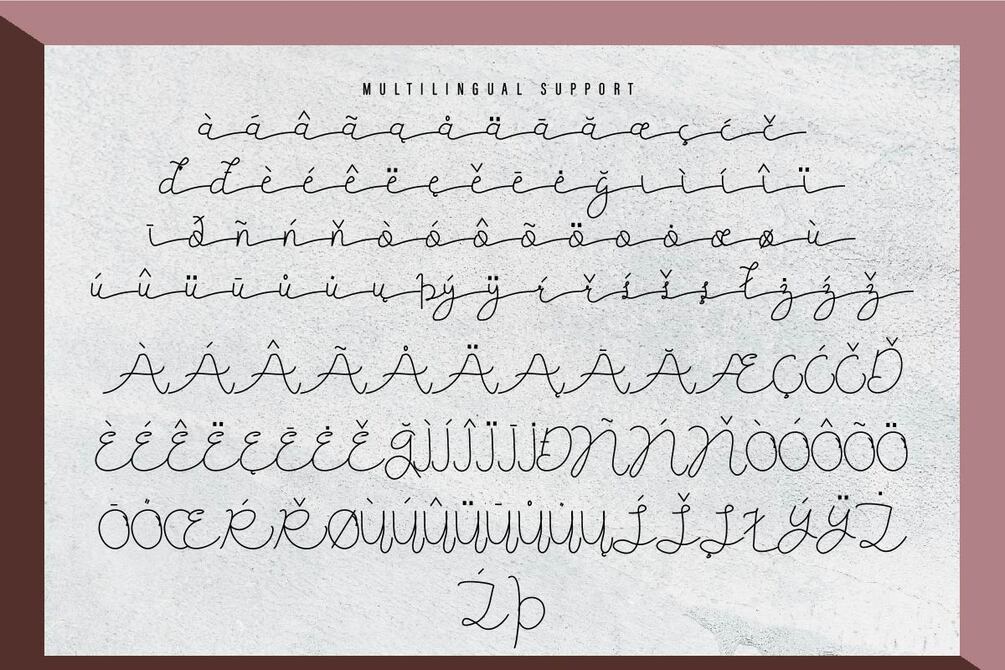 MULTILINGUAL SUPPORT
à á â ã ą å ä ā ă æ ç ć č
ď đ è é ê ë ę ě ē ė ğ ı ì í î ï
ī ð ñ ń ň ò ó ô õ ö o ȯ œ ø ù
ú û ü ū ů u̇ ų þ ý ÿ ŕ ř ś š ş ł ż ź ž
À Á Â Ã Å Ä Ą Ā Ă Æ Ç Ć Č Ď
È É Ê Ë Ę Ē Ė Ě Ğ Ì Í Î Ï Ī İ Đ Ñ Ń Ň Ò Ó Ô Õ Ö
Ō Ő Œ Ŕ Ř Ø Ù Ú Û Ü Ū Ů U̇ Ų Ś Š Ş Ł Ý Ÿ Ż
Ź Þ